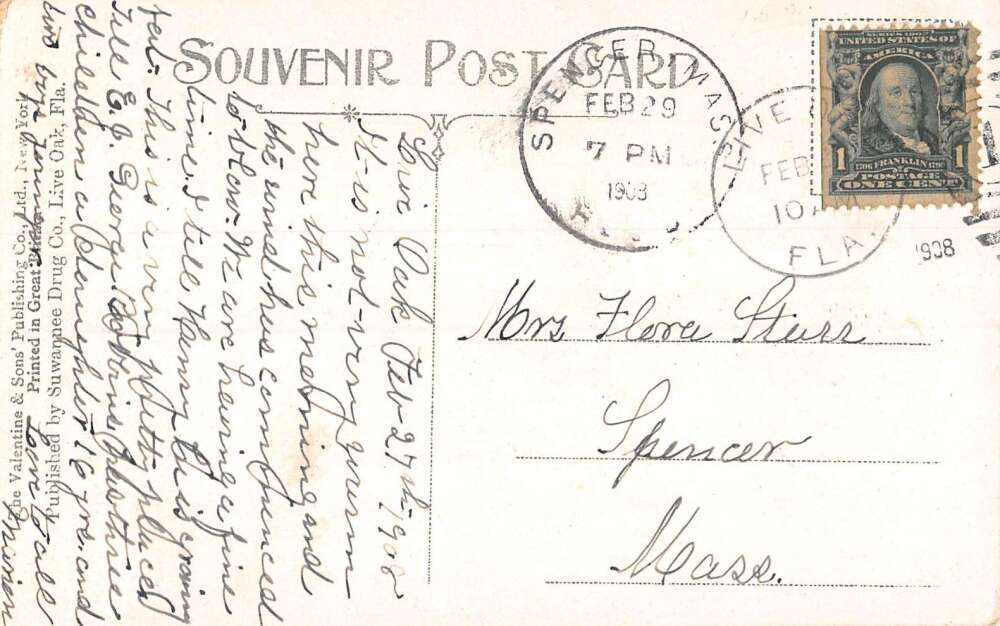 SOUVENIR POST CARD
SPENCER MASS.
FEB 29
7 PM
1908
LIVE
FEB
10 A
FLA.
1908
SERIES 1902
UNITED STATES OF
AMERICA
1 1
1706 FRANKLIN 1790
POSTAGE
ONE CENT
Mrs Flora Starr
Spencer
Mass.
Live Oak Feb 27th-1908
It is not very warm
here this morning and
the wind has commenced
to blow. We are having a fine
time. I tell Hanny is going
feel. This is a very pretty place
Tell E. J. George has three
childden a daughter 16 yrs. and
two young
Love to all
Marion
The Valentine & Sons' Publishing Co., Ltd., New York
Printed in Great Britain
Published by Suwannee Drug Co., Live Oak, Fla.